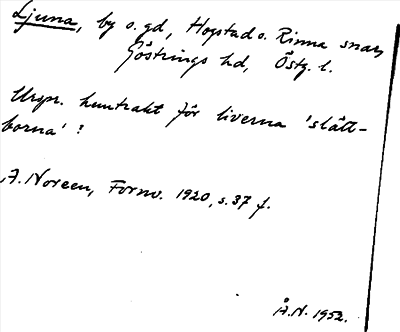 Ljuna, by o. gd, Hogstad o. Rinna snar,
Göstrings hd, Östg. l.
Urspr. kontrakt för liverna 'slått-
borna' ?
A. Noreen, Fornv. 1920, s. 37 f.
Å. N. 1952.